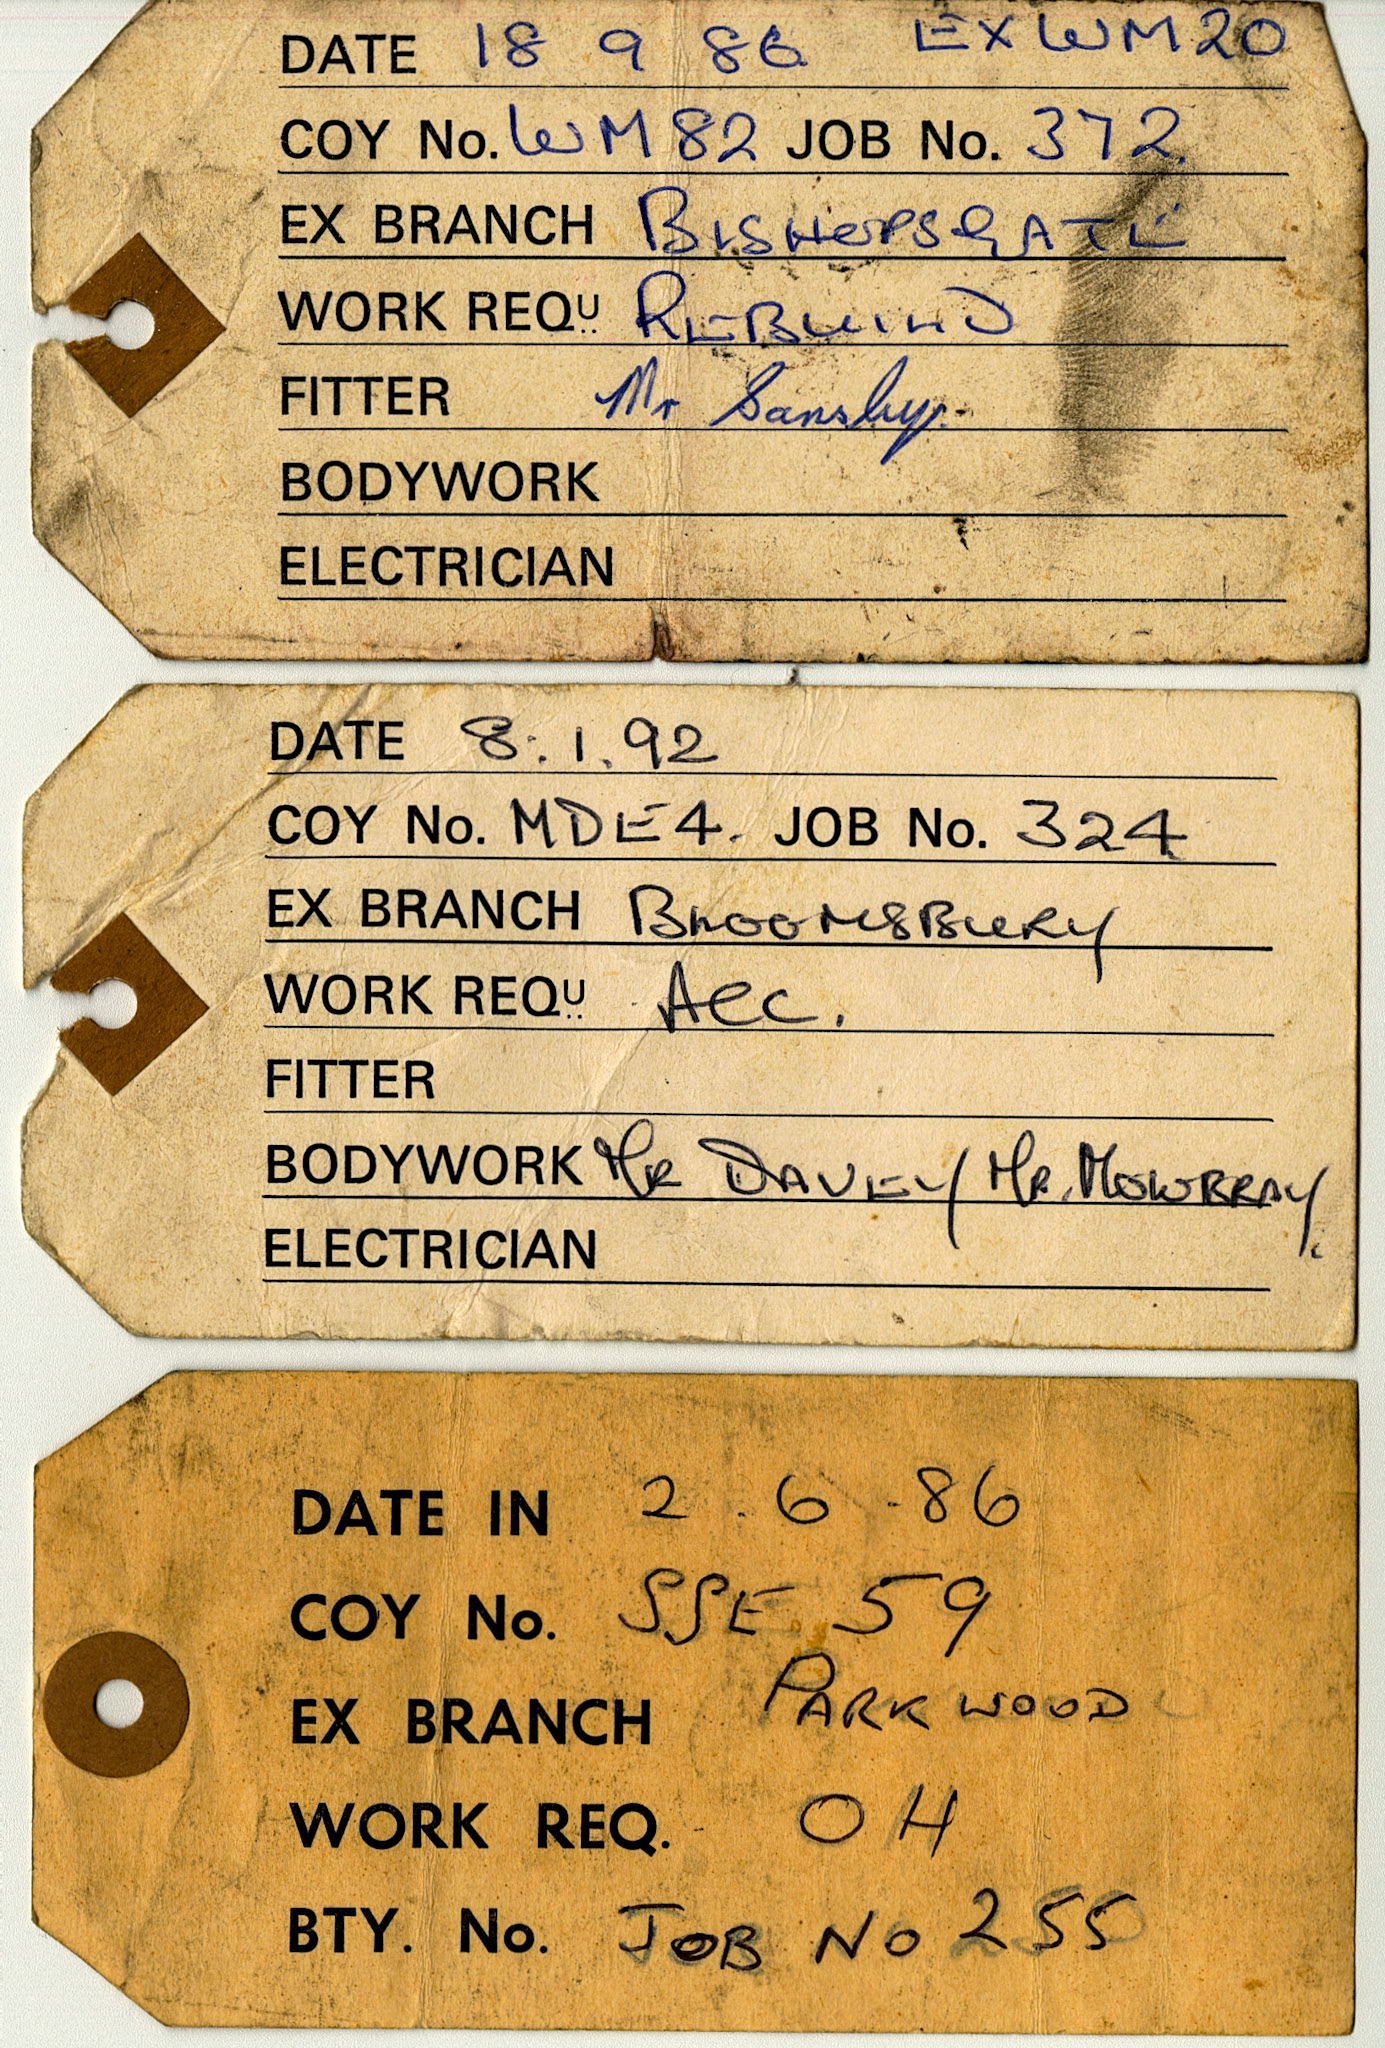 DATE 18 9 86 EX WM20
COY No. WM82 JOB No. 372.
EX BRANCH BISHOPSGATE
WORK REQU REBUILD
FITTER Mr Sansby.
BODYWORK
ELECTRICIAN
DATE 8.1.92
COY No. MDE4. JOB No. 324
EX BRANCH BLOOMSBURY
WORK REQU Acc.
FITTER
BODYWORK MR DAVEY MR. MOWBRAY.
ELECTRICIAN
DATE IN 2.6.86
COY No. SSE 59
EX BRANCH PARKWOOD
WORK REQ. OH
BTY. No. JOB NO 255